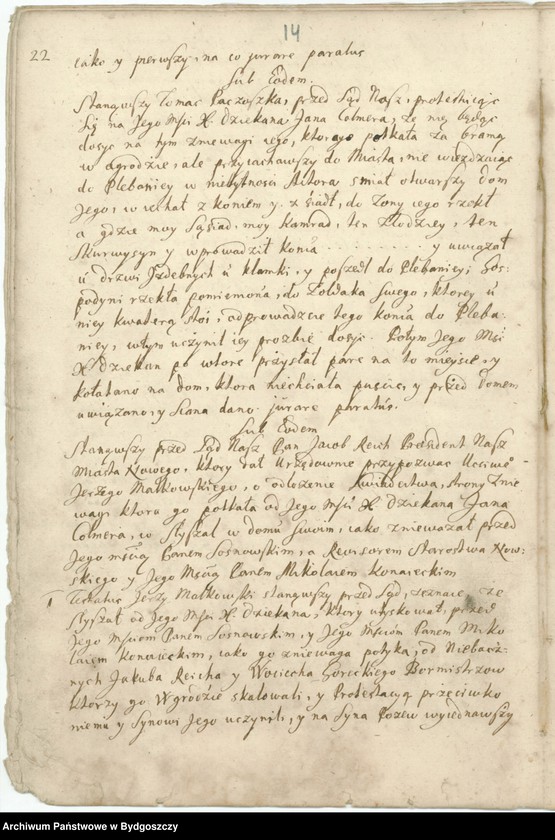 14
22
iako y pierwszy, na co jurare paratus
Sub Eodem.
Stanąwszy Tomas Paczoszka, przed Sąd Nasz, protestuiąc
się na Jego Mści X. Dziekana Jana Colmera, że nię będąc
dosyc na tym zniewagi iego, ktorąyo potkała za bramą
w ogrodzie, ale przyiachawszy do Miasta, nie wiezdzaiąc
do Plebaniey w niebytnosci Aktora smiał otwarszy dom
Jego, wiechat z koniem y z siadł, do zony iego rzekł
a gdzie moy Sąsiad, moy Kamrad, ten Złodziey, ten
Skurwysyn y wprowadził konia . . . . . . . . . . y uwiązał
u drzwi Izdebnych u klamki, y poszedł do Plebaniey; Gos-
podyni rzekła pomieniona, do Zołdaka swego, ktorey u
niey kwaterą stoi, odprowadzcie tego konia do Pleba-
niey, wtym uczynił iey prozbie dosyc. Potym Jego Mści
X Dziekan po wtore przysłał pare na to mieysce, y
kołatano na dom, ktora niechciała puscic, y przed domem
uwiązano, y siana dano. jurare paratus.
Sub Eodem
Stanąwszy przed Sąd Nasz Pan Jacob Reich President Nasz
Miasta Nowego, ktory dał Urzędownie przypozwac Uczciwe-
Jerzego Małkowskiego, o odłozenie Swiadectwa, strony znie
wagi ktora go potkała od Jego Mści X Dziekana Jana
Colmera, co słyszał w domu swoim, iako zniewazał przed
Jego mścią Panem Sosnowskim, a Rewsorem Starostwa Now-
skiego y Jego Mścią Panem Mikołaiem Konarckim
1 Citatus Jerzy Małkowski stanąwszy przed Sąd, zeznaie, ze
słyszał od Jego Mści X. Dziekana, ktory utyskował, przed
Jego Mściem Panem Sosnowskim, y Jego Mściom Panem Miko
łaiem Konarckim, iako go zniewaga potyka, od Niebacz-
nych Jakuba Reicha y Woiciecha Goreckiego Bormistrzow
ktorzy go W grodzie skalowali, y Protestacyą przeciwko
niemu y Synowi Jego uczynili, y na Syna Pozew wyiednawszy
Archiwum Państwowe w Bydgoszczy